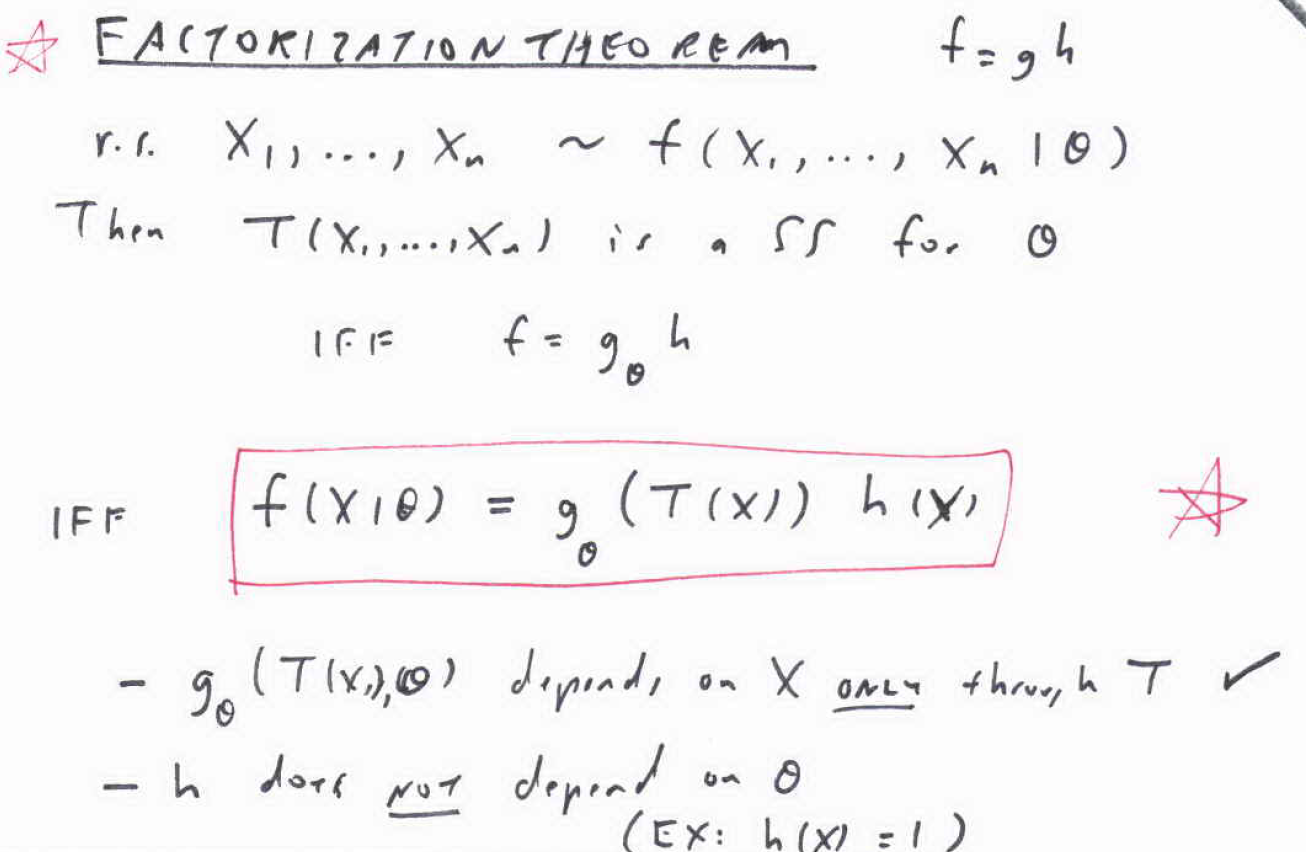 FACTORIZATION THEOREM f = g h
r.s. X₁, ..., Xₙ ~ f(X₁, ..., Xₙ | θ)
Then T(X₁, ..., Xₙ) is a SS for θ
IFF f = g_θ h
IFF f(X|θ) = g_θ (T(X)) h(X)
- g_θ (T(X), θ) depends on X ONLY through T ✓
- h does NOT depend on θ
(EX: h(X) = 1)